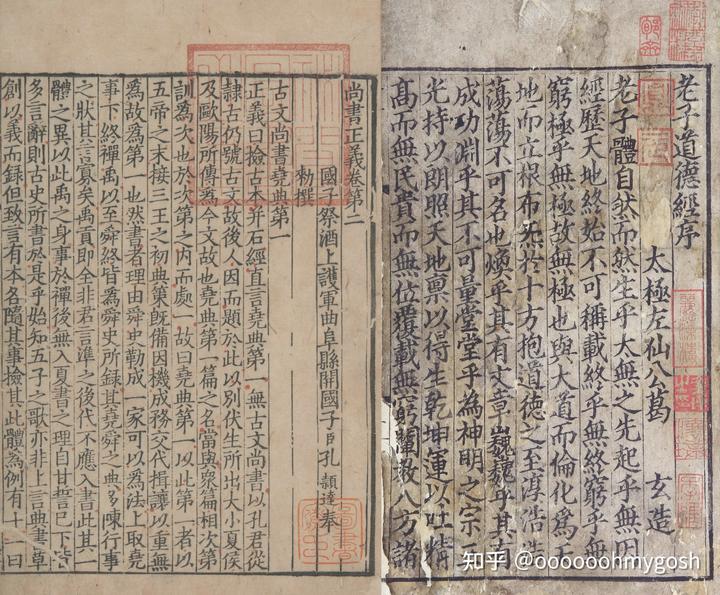 老子道德經序
太極左仙八公葛 玄造
老子體自然而然生乎太無之先起乎無因
經歷天地終始不可稱載終乎無終窮乎無
窮極乎無極故無極也與大道而倫化為天
地而立根布炁於十方抱道德之至淳浩浩
蕩蕩不可名也煥乎其有文章巍巍乎其有
成功淵乎其不可量堂堂乎為神明之宗三
光持以朗照天地稟以得生乾坤運以吐精
高而無民貴而無位覆載無窮闡教八方諸
尚書正義卷第二
國子祭酒上護軍曲阜縣開國子臣孔穎達奉
勑撰
古文尚書堯典第一
正義曰檢古本并石經直言堯典第一無古文尚書以孔君從
隸古仍號古文故後人因而題於此以別伏生所出大小夏侯
及歐陽所傳為今文故也堯典第一篇之名當與衆篇相次第
訓為次也於次第之內而處一故曰堯典第一以此第一者以
五帝之末接三王之初典策既備因機成務交代揖讓以重無
為故為第一也然書者理由舜史勒成一家可以為法上取堯
事下終禪禹以至舜終皆為舜史所録其堯舜之典多陳行事
之狀其言寡矣禹貢即全非君言準之後代不應入書此其一
體之異以此禹之身事於禪後無入夏書之理自甘誓已下皆
多言辭則古史所書於是乎始知五子之歌亦非上言典書草
創以義而録但致言有本各隨其事檢其此體為例有十一曰
知乎 @oooooohmygosh